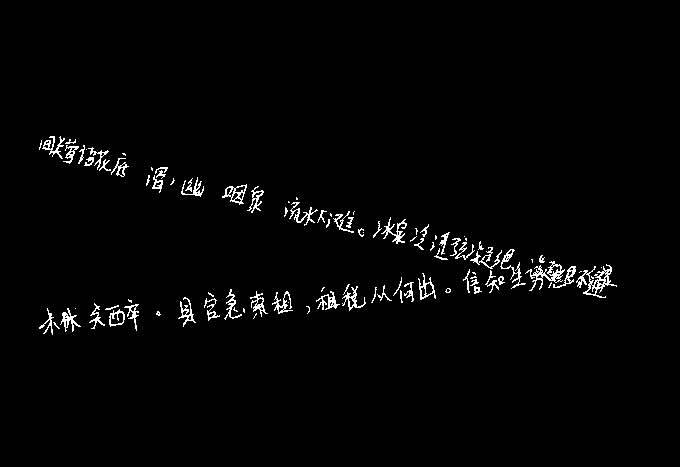 间关莺语花底 滑，幽 咽泉 流水下滩。冰泉冷涩弦凝绝
未秋关西卒。县官急索租，租税从何出。信知生男恶